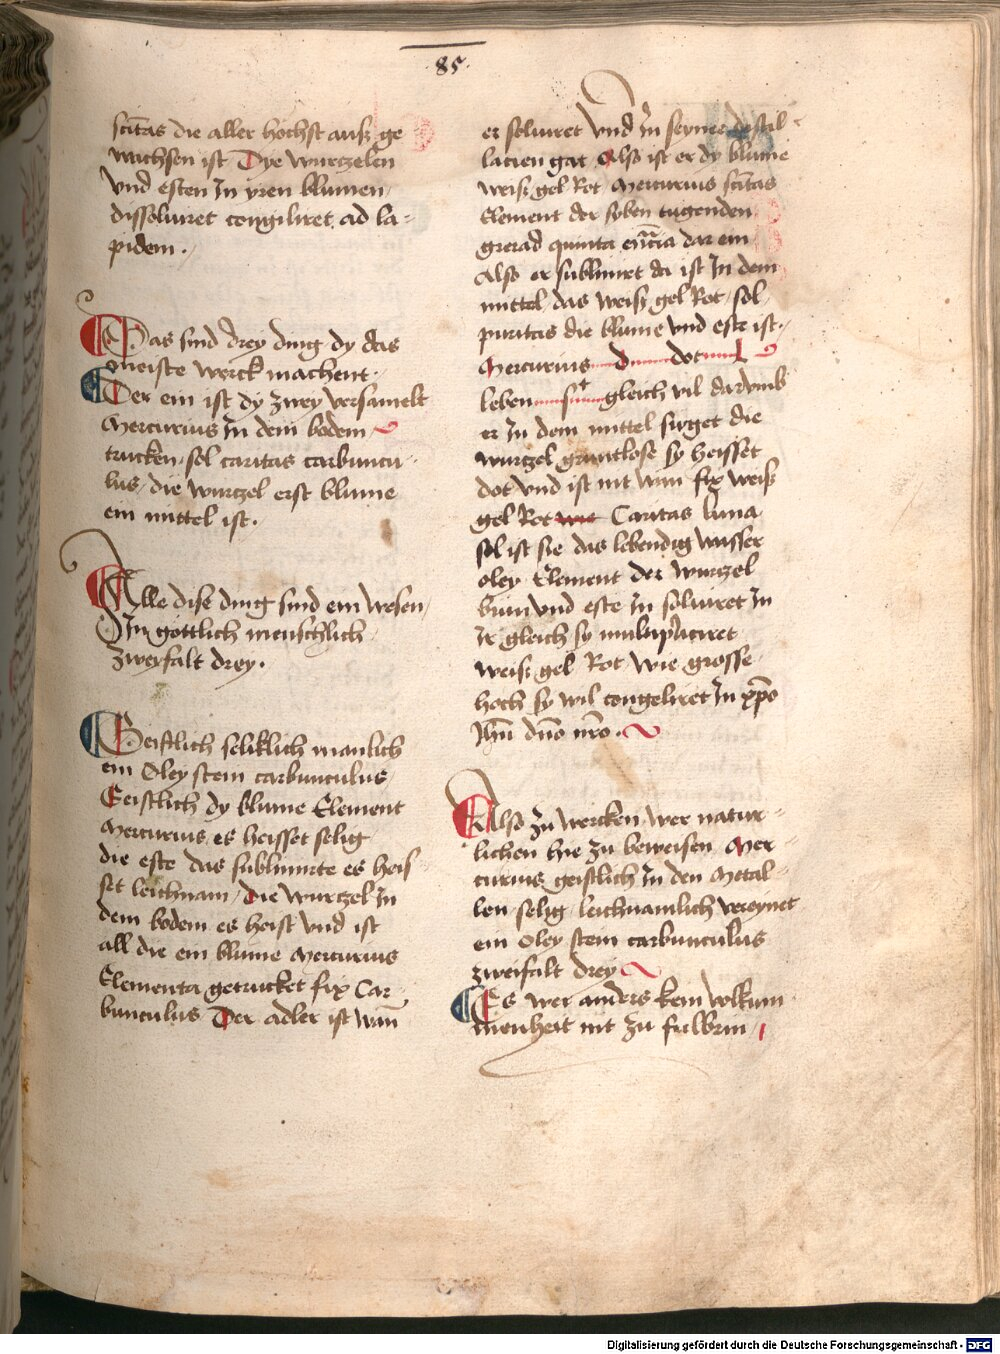 85.
sc̄tas die aller hochst auß ge
wachsen ist Dye wurtzelen
vnd esten Jn yren blumen
dissoluiret congiliret ad la-
pidem.
Das sind drey ding dy das
meiste werck machent.
Der ein ist dy zwey versamelt
Mercurius Jn dem bodem
trucken sol caritas carbuncu-
lus, die wurtzel erst blume
ein mittel ist.
Alle dise ding sind ein wesen
Jn gottlich menschlich
zweyfalt drey.
Geistlich seliklich manlich
ein Oley stein carbunculus
Geistlich dy blume Element
Mercurius es heisset selig
die este das sublimirte es heis-
set leichnam, Die wurtzel Jn
dem bodem es heist vnd ist
all die ein blume Mercurius
Elementa getrucket fix Car-
bunculus Der adler ist wan̄
er soluiret vnd Jn seyner destil-
lacien gat Also ist er dy blume
weiß gel Rot Mercurius sc̄tas
Element der siben tugenden
grerad quinta en̄cia dar ein
Also er sublimirt da ist Jn dem
mittel das weiß gel Rot, sol
puritas die blume vnd este ist.
Mercurius d dot
leben gleich vil darumb
er Jn dem mittel sirget die
wurtzel gruntlose sy heisset
dot vnd ist nit wan fix weiß
gel Rot wie Caritas luna
sol ist sie das lebendig wasser
oley Element der wurtzel
bum vnd este Jn soluiret Jn
Jr gleich sy multipliciret
weiß gel Rot wie grosse
hoch sy wil congeliret Jn xp̄o
Jhū dn̄o nr̄o.
Also zu wercken wer natur-
lichen hie zu beweisen Mer-
curius geistlich Jn den Metal-
len selig leichnamlich vereynet
ein Oley stein carbunculus
zweifalt drey
Es wer anders kein volkum-
menheit nit zu fulbrin-
Digitalisierung gefördert durch die Deutsche Forschungsgemeinschaft - DFG